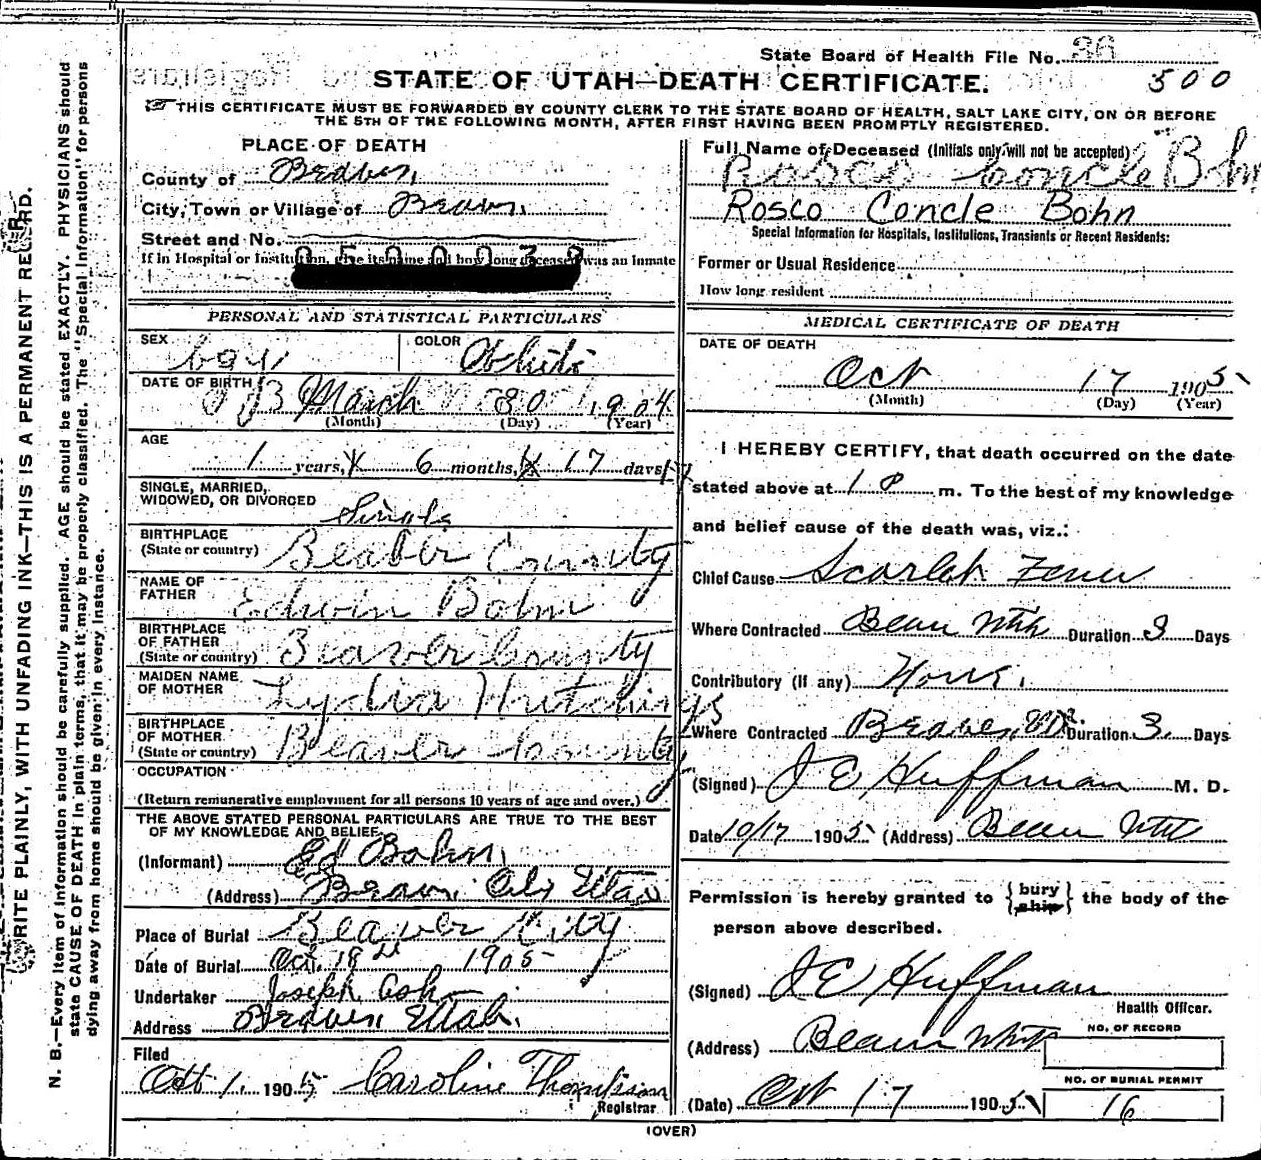 State Board of Health File No. 36
500
STATE OF UTAH—DEATH CERTIFICATE.
THIS CERTIFICATE MUST BE FORWARDED BY COUNTY CLERK TO THE STATE BOARD OF HEALTH, SALT LAKE CITY, ON OR BEFORE
THE 5TH OF THE FOLLOWING MONTH, AFTER FIRST HAVING BEEN PROMPTLY REGISTERED.
WRITE PLAINLY, WITH UNFADING INK—THIS IS A PERMANENT RECORD.
N. B.—Every item of information should be carefully supplied. AGE should be stated EXACTLY. PHYSICIANS should
state CAUSE OF DEATH in plain terms, that it may be properly classified. The "Special Information" for persons
dying away from home should be given in every instance.
PLACE OF DEATH
County of Beaver
City, Town or Village of Beaver
Street and No.
If in Hospital or Institution, give its name and how long deceased was an Inmate
PERSONAL AND STATISTICAL PARTICULARS
SEX boy
COLOR White
DATE OF BIRTH March 30 1904
(Month) (Day) (Year)
AGE
1 years, 6 months, 17 days
SINGLE, MARRIED,
WIDOWED, OR DIVORCED Single
BIRTHPLACE
(State or country) Beaver County
NAME OF
FATHER Edwin Bohn
BIRTHPLACE
OF FATHER
(State or country) Beaver County
MAIDEN NAME
OF MOTHER Lydia Hutchings
BIRTHPLACE
OF MOTHER
(State or country) Beaver County
OCCUPATION
(Return remunerative employment for all persons 10 years of age and over.)
THE ABOVE STATED PERSONAL PARTICULARS ARE TRUE TO THE BEST
OF MY KNOWLEDGE AND BELIEF
(Informant) Ed Bohn
(Address) Beaver City Utah
Place of Burial Beaver City
Date of Burial Oct. 18 1905
Undertaker Joseph
Address Beaver Utah.
Filed
Oct 1905 Caroline Thompson
Registrar
Full Name of Deceased (Initials only will not be accepted)
Rosco Concle Bohn
Rosco Concle Bohn
Special Information for Hospitals, Institutions, Transients or Recent Residents:
Former or Usual Residence
How long resident
MEDICAL CERTIFICATE OF DEATH
DATE OF DEATH
Oct 17 1905
(Month) (Day) (Year)
I HEREBY CERTIFY, that death occurred on the date
stated above at 1 P m. To the best of my knowledge
and belief cause of the death was, viz.:
Chief Cause Scarlet Fever
Where Contracted Beaver Utah Duration 3 Days
Contributory (If any) None.
Where Contracted Beaver, Duration 3 Days
(Signed) J E Huffman M. D.
Date 10/17 1905 (Address) Beaver Utah
Permission is hereby granted to {bury ship} the body of the
person above described.
(Signed) J E Huffman
Health Officer.
(Address) Beaver Utah
NO. OF RECORD
NO. OF BURIAL PERMIT
16
(Date) Oct 17 1905
(OVER)